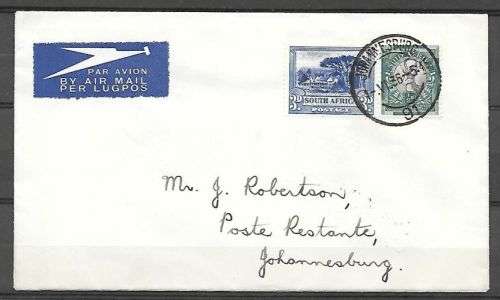 PAR AVION
BY AIR MAIL
PER LUGPOS
3D
SOUTH AFRICA
POSTAGE
JOHANNESBURG
Mr. J. Robertson,
Poste Restante,
Johannesburg.